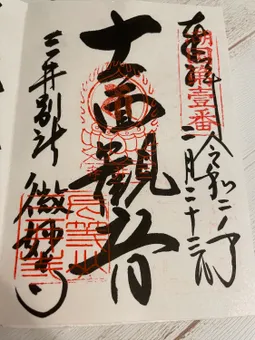 奉拝
壹番
令和二年
二月二十三日
十一面觀音
三井別所
微妙寺